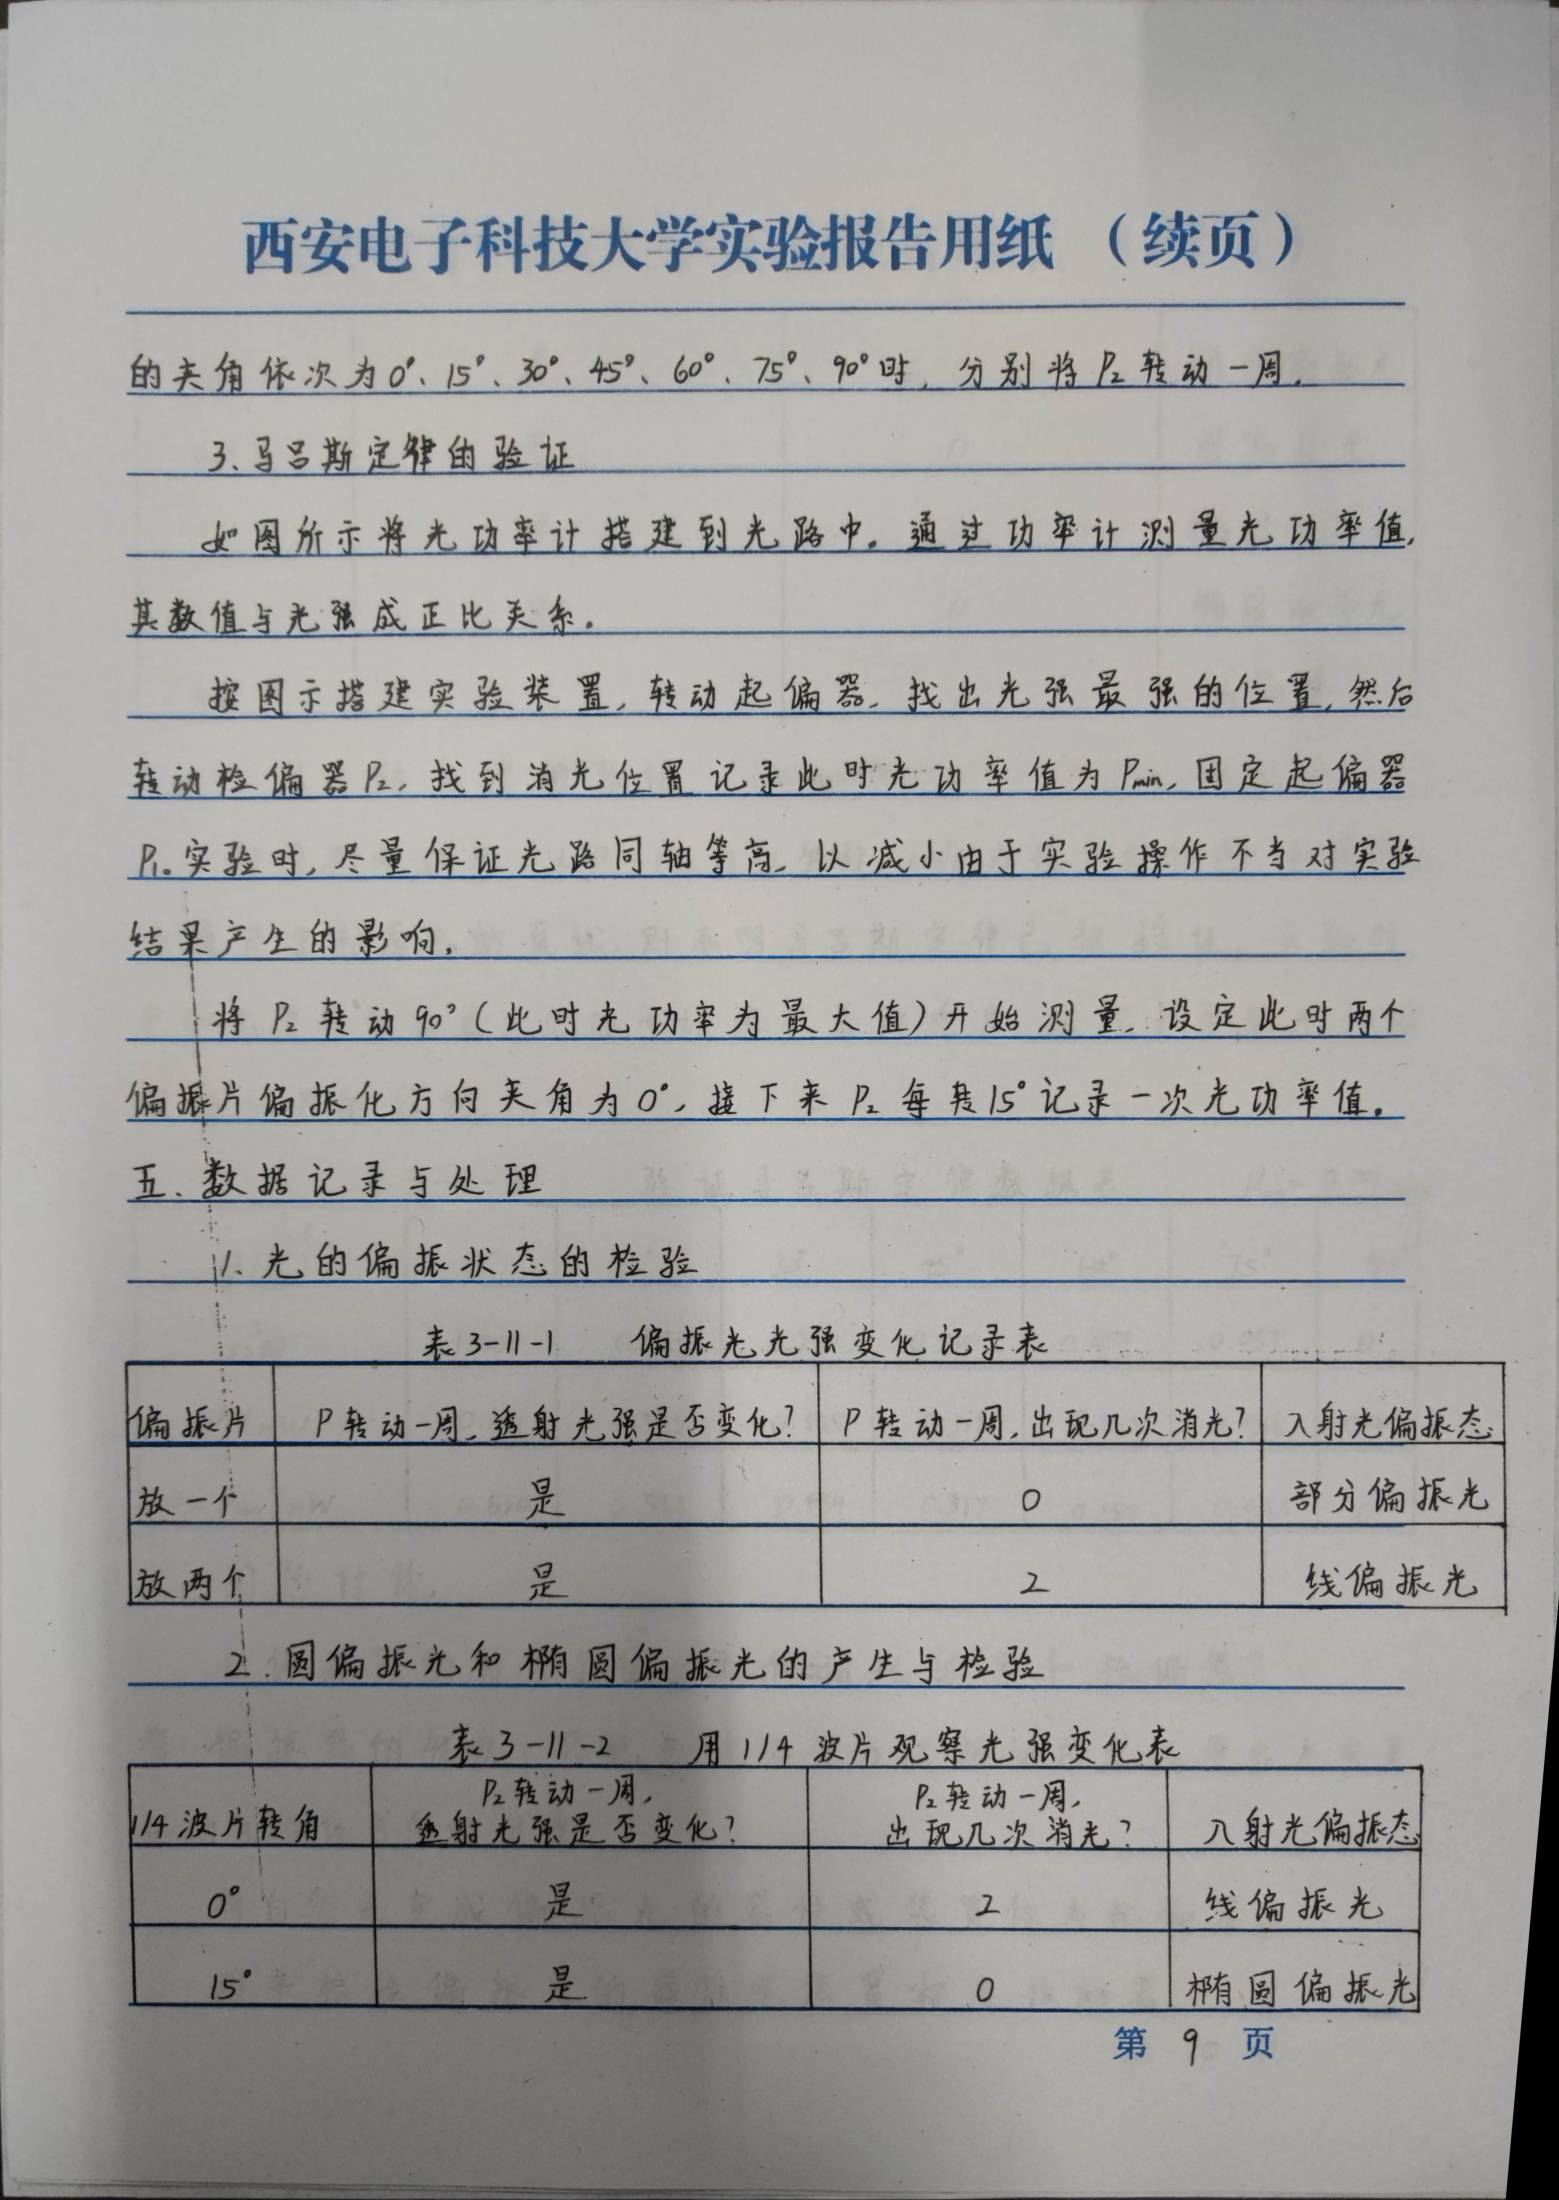 西安电子科技大学实验报告用纸 （续页）
的夹角依次为0°、15°、30°、45°、60°、75°、90°时，分别将P₂转动一周。
3、马吕斯定律的验证
如图所示将光功率计搭建到光路中。通过功率计测量光功率值，
其数值与光强成正比关系。
按图示搭建实验装置，转动起偏器，找出光强最强的位置，然后
转动检偏器P₂，找到消光位置记录此时光功率值为Pmin，固定起偏器
P₁。实验时，尽量保证光路同轴等高，以减小由于实验操作不当对实验
结果产生的影响。
将P₂转动90°（此时光功率为最大值）开始测量，设定此时两个
偏振片偏振化方向夹角为0°，接下来P₂每转15°记录一次光功率值。
五、数据记录与处理
1、光的偏振状态的检验
表3-11-1 偏振光光强变化记录表
偏振片 P转动一周，透射光强是否变化？ P转动一周，出现几次消光？ 入射光偏振态
放一个 是 0 部分偏振光
放两个 是 2 线偏振光
2.圆偏振光和椭圆偏振光的产生与检验
表3-11-2 用1/4波片观察光强变化表
P₂转动一周， P₂转动一周，
1/4波片转角 透射光强是否变化？ 出现几次消光？ 入射光偏振态
0° 是 2 线偏振光
15° 是 0 椭圆偏振光
第 9 页